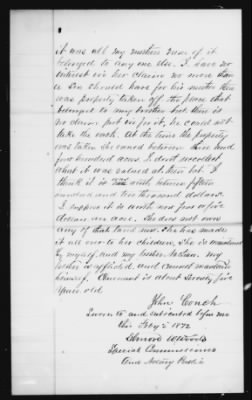 it was all my mothers none of it
belonged to any one else. I have no
interest in her claim no more than
a son should have for his mother there
was property taken off the place that
belonged to my brother but there is
no claim put in for it, he could not
take the oath. At the time the property
was taken she owned between three and
four hundred acres. I dont recollect
what it was valued at then but I
think it is worth between fifteen
hundred and two thousand dollars.
I suppose it is worth now five or six
dollars an acre. She does not own
any of that land now. She has made
it all over to her children, she is maintained
by myself, and my brother Nathan. my
brother is afflicted and cannot maintain
himself. Claimant is about Seventy five
years old
John Couch
Sworn to and subscribed before me
this Feby 5 1872
Special Commissioner
and Notary Public